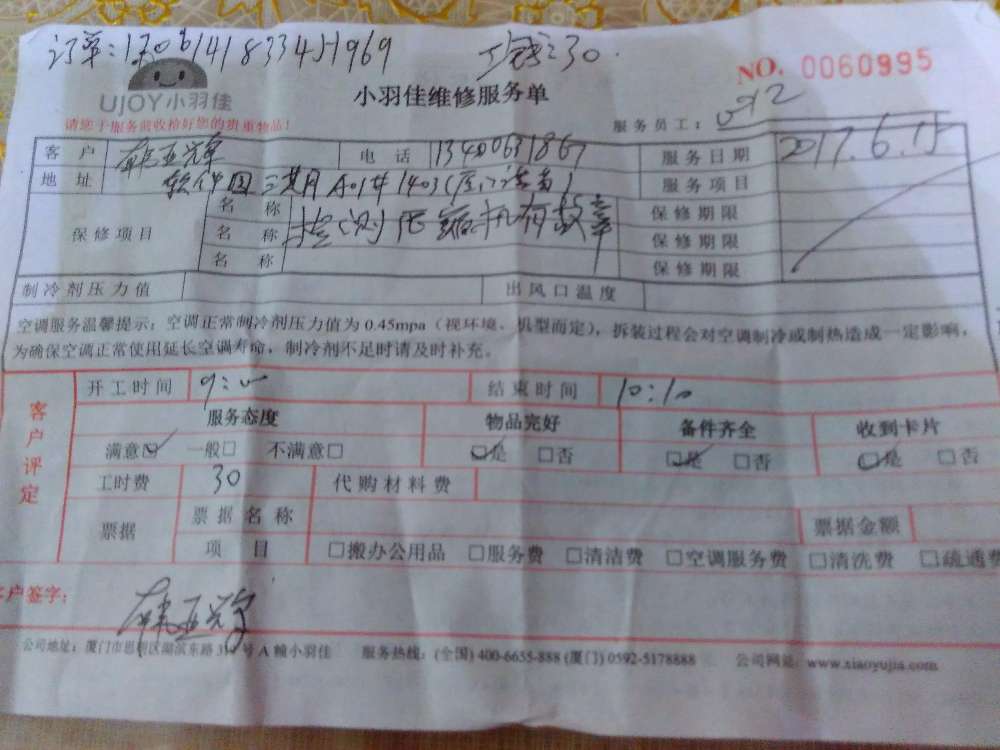 NO. 0060995
UJOY小羽佳
小羽佳维修服务单
请您于服务前收拾好您的贵重物品!
服务员工:
客户 韩亚辉 电话 服务日期 2017.6.15
地址 服务项目
保修项目 名称 保修期限
名称 检测压缩机有故障 保修期限
名称 保修期限
制冷剂压力值 出风口温度
空调服务温馨提示:空调正常制冷剂压力值为0.45mpa(视环境、机型而定),拆装过程会对空调制冷或制热造成一定影响,
为确保空调正常使用延长空调寿命,制冷剂不足时请及时补充。
客户评定
开工时间 结束时间 10:10
服务态度 物品完好 备件齐全 收到卡片
满意☑ 一般□ 不满意□ ☑是 □否 ☑是 □否 ☑是 □否
工时费 30 代购材料费
票据 票据名称 票据金额
项目 □搬办公用品 □服务费 □清洁费 □空调服务费 □清洗费 □疏通费
客户签字: 韩亚辉
公司地址:厦门市思明区湖滨东路 号A幢小羽佳 服务热线:(全国) 400-6655-888 (厦门) 0592-5178888 公司网站:www.xiaoyujia.com